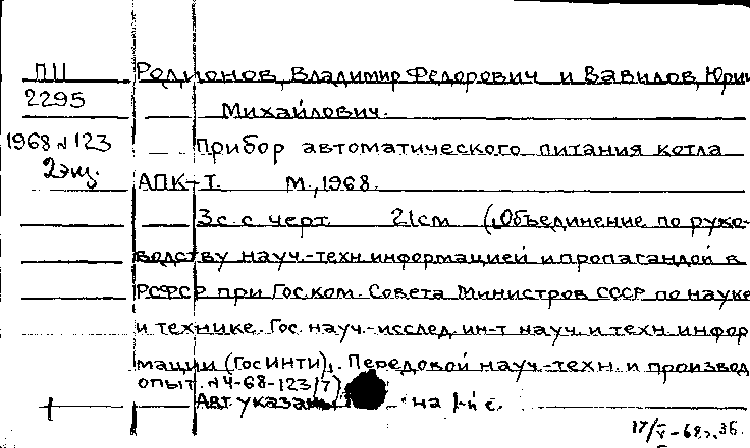 ПП
2295
1968 № 123
2 экз.
Родионов, Владимир Федорович и Вавилов, Юрий
Михайлович.
Прибор автоматического питания котла
АПК-Т. М., 1968.
3 с. с черт. 21 см (Объединение по руко-
водству науч.-техн. информацией и пропагандой в
РСФСР при Гос. ком. Совета Министров СССР по науке
и технике. Гос. науч.-исслед. ин-т науч. и техн. инфор
мации (ГосИНТИ). Передовой науч.-техн. и производ
опыт. № 4-68-123/7)
Авт. указаны на